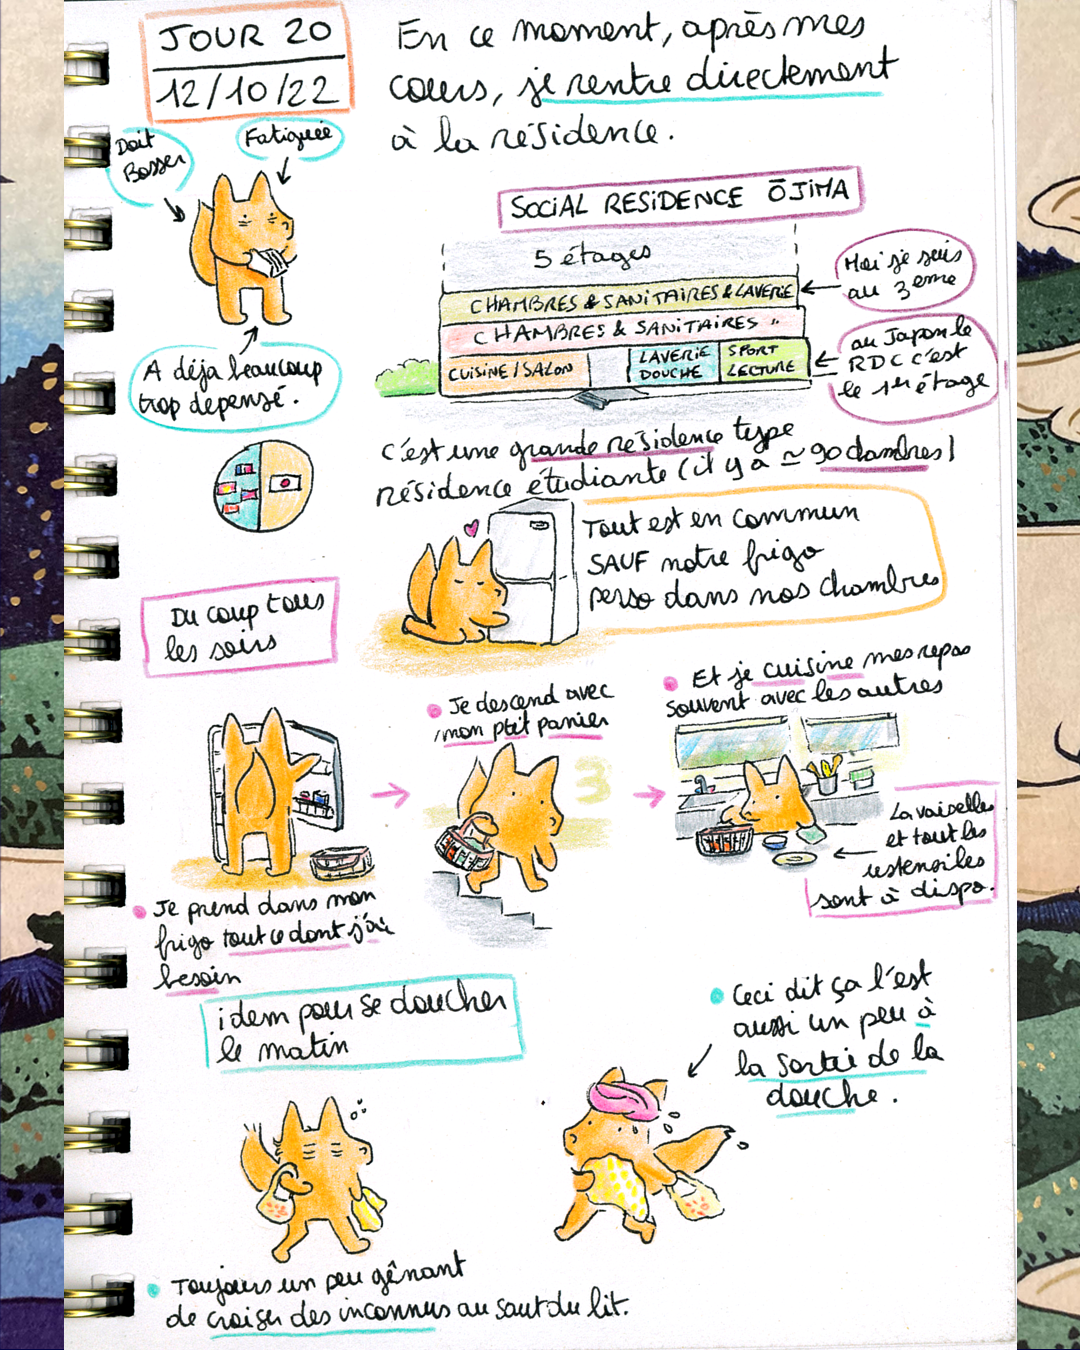 JOUR 20
12/10/22
En ce moment, après mes
cours, je rentre directement
à la résidence.
Doit
Bosser
Fatiguée
A déja beaucoup
trop dépensé.
SOCIAL RESIDENCE ŌJIMA
5 étages
CHAMBRES & SANITAIRES & LAVERIE
CHAMBRES & SANITAIRES "
CUISINE / SALON
LAVERIE
DOUCHE
SPORT
LECTURE
Moi je suis
au 3eme
au Japon le
RDC c'est
le 1er étage
c'est une grande résidence type
résidence étudiante (il y a ≃ 90 chambres)
Tout est en commun
SAUF notre frigo
perso dans nos chambres
Du coup tous
les soirs
Je prend dans mon
frigo tout ce dont j'ai
besoin
Je descend avec
mon ptit panier
3
Et je cuisine mes repas
souvent avec les autres
La vaiselle
et tout les
ustensiles
sont à dispo.
idem pour se doucher
le matin
Toujours un peu gênant
de croiser des inconnus au saut du lit.
Ceci dit ça l'est
aussi un peu à
la sortie de la
douche.